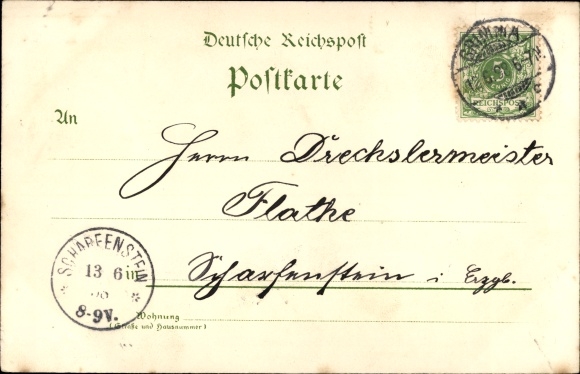 Deutsche Reichspost
Postkarte
REICHSPOST
An
Herrn Drechslermeister
Flathe
SCHARFENSTEIN
13 6
8-9V.
in
Scharfenstein i Erzgb.
Wohnung
(Straße und Hausnummer)